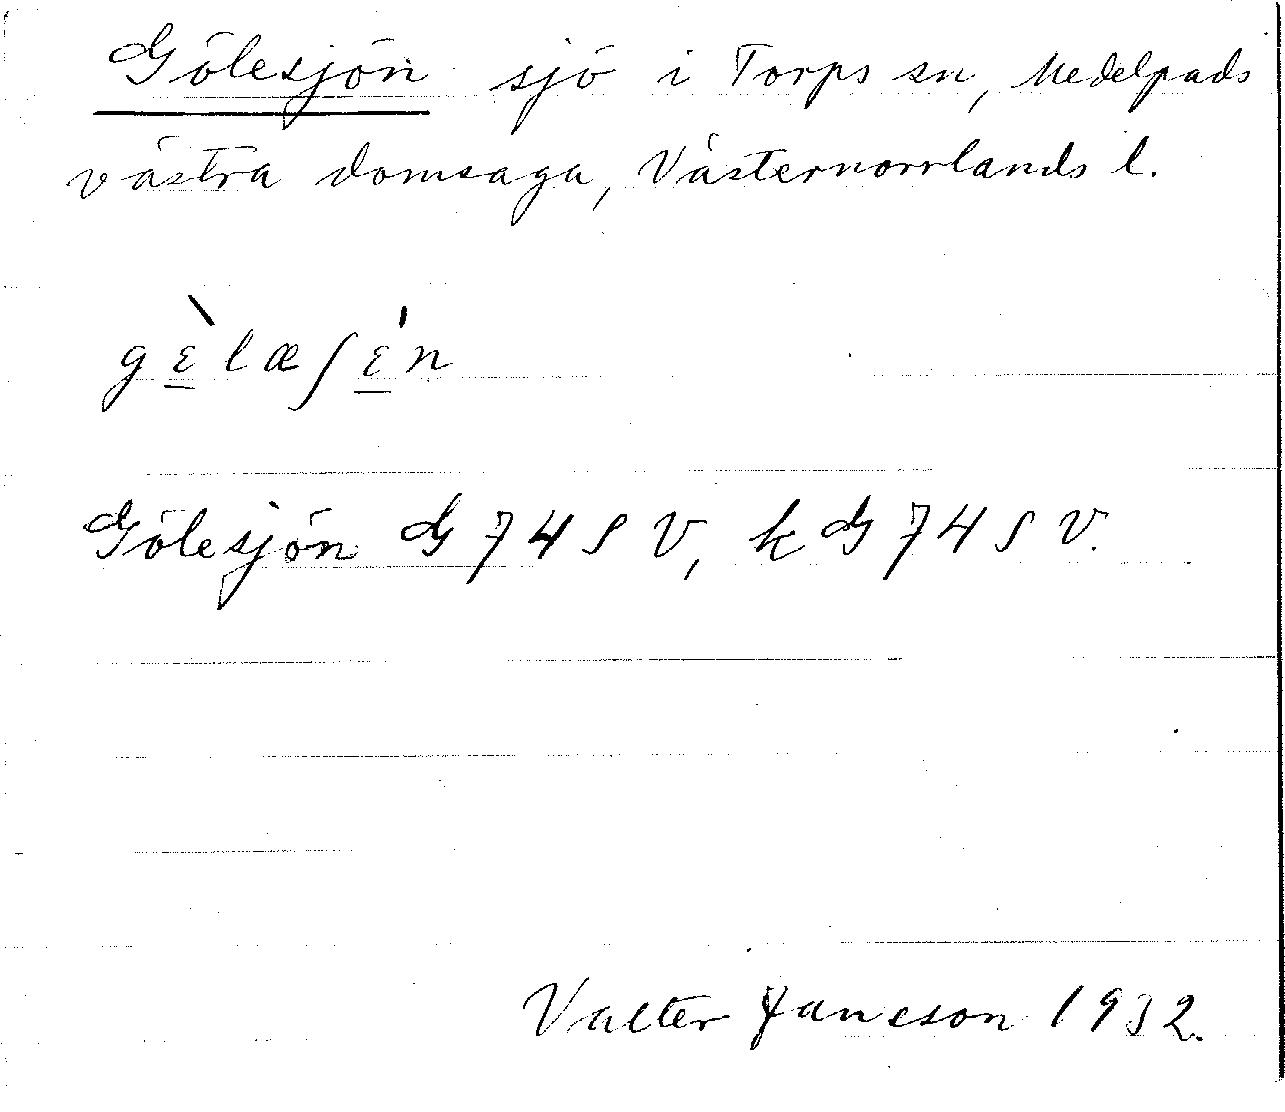 Gölesjön sjö i Torps sn, Medelpads
västra domsaga, Västernorrlands l.
gɛ̠̀læʃɛ̠́n
Gölesjön G 74 S V, k G 74 S V.
Valter Jansson 1932.